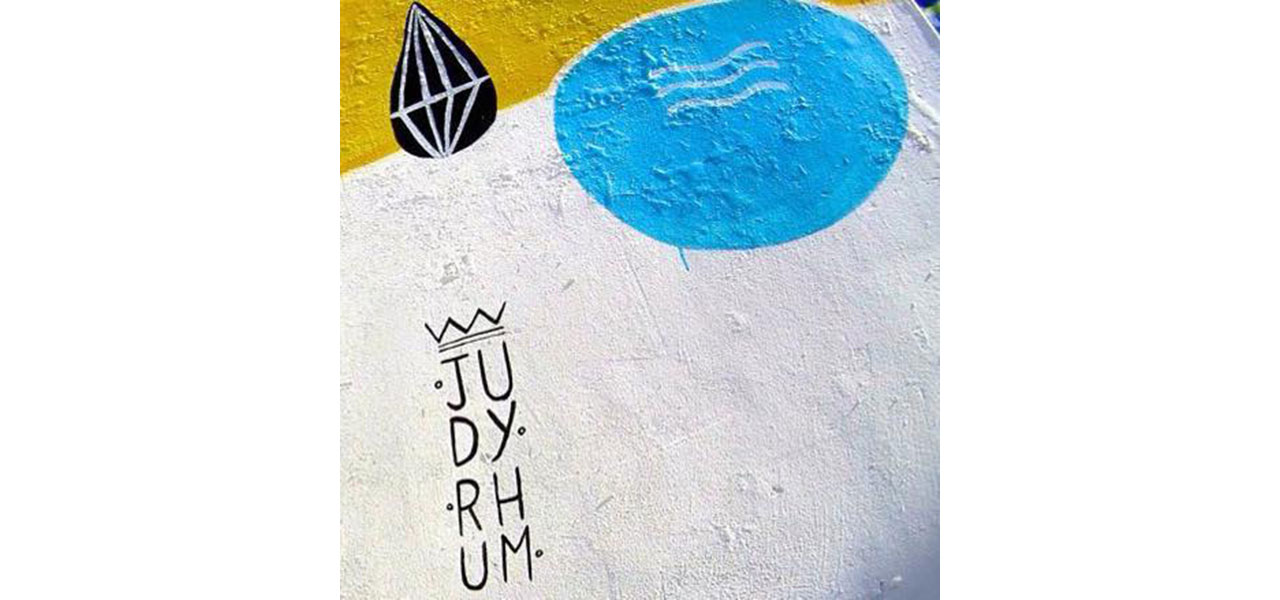 JU
DY
RH
UM